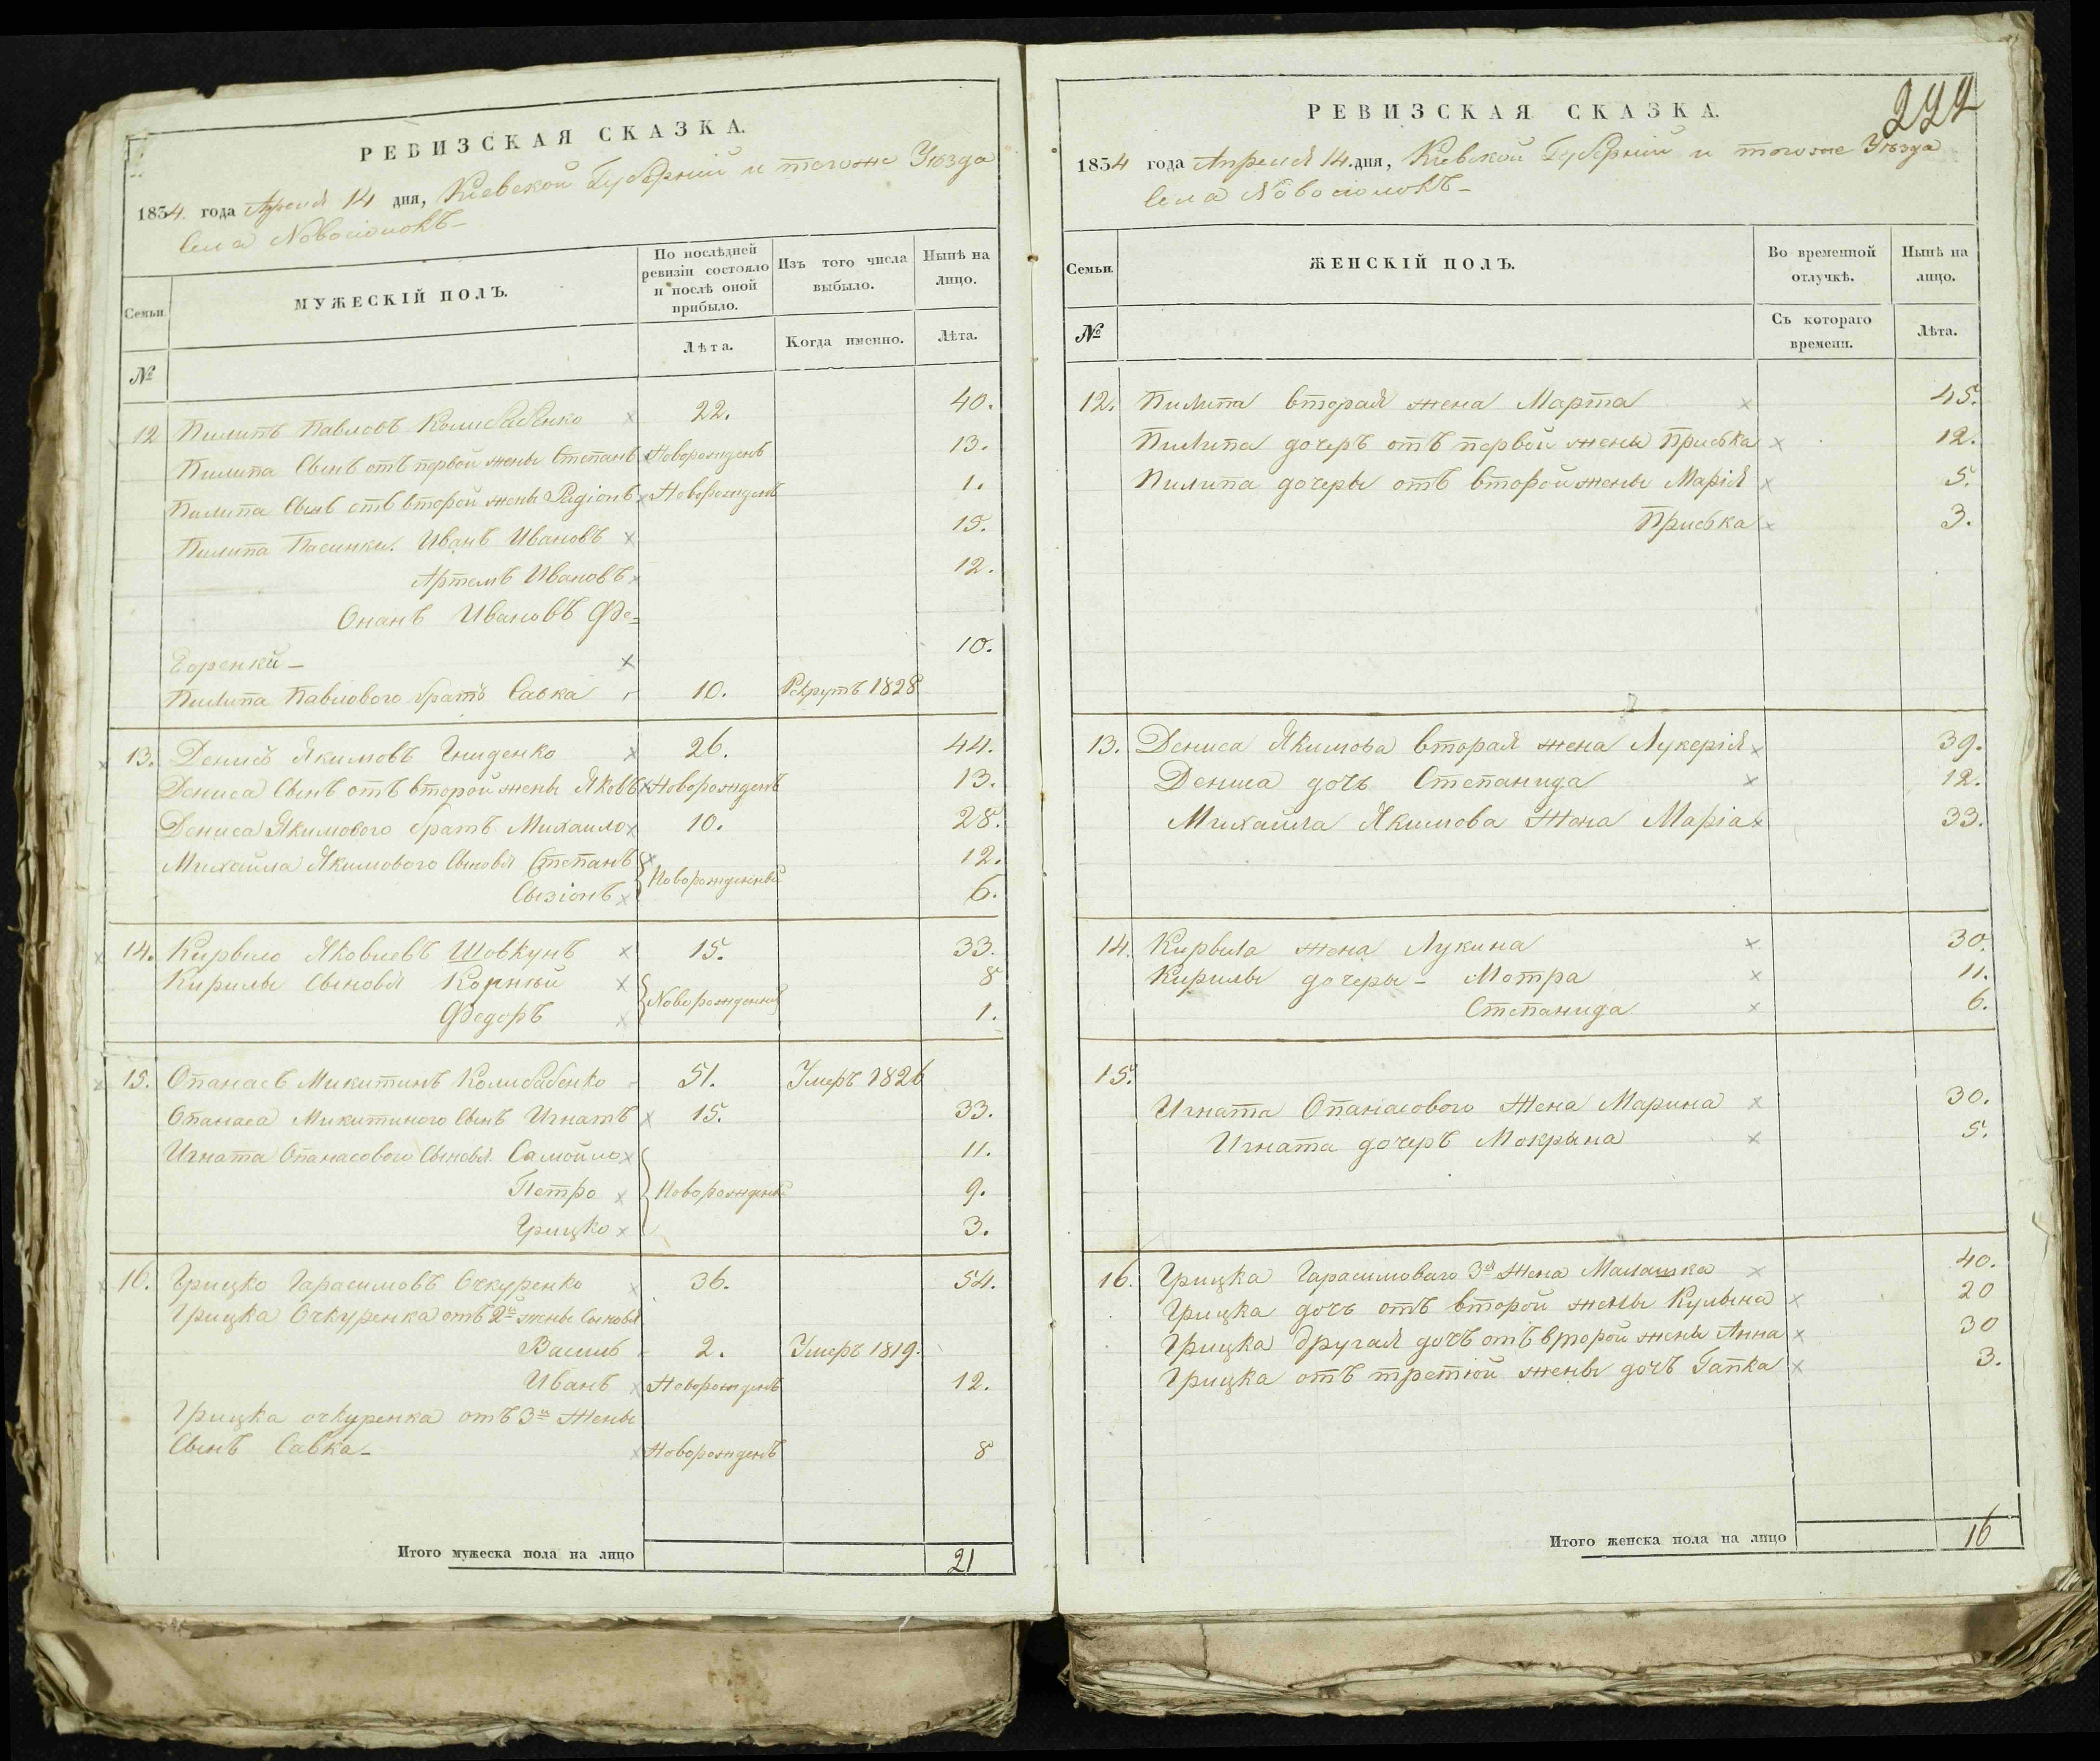 РЕВИЗСКАЯ СКАЗКА.
1834. года Апреля 14 дня, Кіевской Губерніи и тогоже Уѣзда
села Новосіолокъ-
Семьи.
МУЖЕСКІЙ ПОЛЪ.
По послѣдней ревизіи состояло и послѣ оной прибыло.
Изъ того числа выбыло.
Нынѣ на лицо.
№
Лѣта.
Когда именно.
Лѣта.
12 Пилипъ Павловъ Колибабенко 22. 40.
Пилипа Сынъ отъ первой жены Степанъ Новорожденъ 13.
Пилипа Сынъ отъ второй жены Радіонъ Новорожденъ 1.
Пилипа Пасинки. Иванъ Ивановъ 15.
Артемъ Ивановъ 12.
Онанъ Ивановъ Фе=
доренки- 10.
Пилипа Павлового братъ Савка 10. Рекрутъ 1828
13. Денисъ Якимовъ Гниденко 26. 44.
Дениса Сынъ отъ второй жены Яковъ Новорожденъ 13.
Дениса Якимового братъ Михайло 10. 28.
Михайла Якимового Сыновя Степанъ 12.
Новорожденный
Сизіонъ 6.
14. Кирыло Яковлевъ Шовкунъ 15. 33.
Кирилы Сыновя Корній 8
Новорожденный
Федоръ 1.
15. Опанасъ Микитинъ Колибабенко 51. Умеръ 1826
Опанаса Микитиного Сынъ Игнатъ 15. 33.
Игната Опанасового Сыновя. Самойло 11.
Петро Новорожденны 9.
Грицко 3.
16. Грицко Гарасимовъ Очкуренко 36. 54.
Грицка Очкуренка отъ 2й жены Сыновя
Василь 2. Умеръ 1819.
Иванъ Новорожденъ 12.
Грицка очкуренка отъ 3й Жены
Сынъ Савка- Новорожденъ 8
Итого мужеска пола на лицо 21
222
РЕВИЗСКАЯ СКАЗКА.
1834 года Апреля 14. дня, Кіевской Губерніи и тогоже Уѣзда
села Новосіолокъ-
Семьи.
ЖЕНСКІЙ ПОЛЪ.
Во временной отлучкѣ.
Нынѣ на лицо.
№
Съ котораго времени.
Лѣта.
12. Пилипа вторая жена Марта 45.
Пилипа дочерь отъ первой жены Приська 12.
Пилипа дочеры отъ второй жены Марія 5.
Приська 3.
13. Дениса Якимова вторая жена Лукерія 39.
Дениса дочь Степанида 12.
Михайла Якимова Жена Маріа 33.
14. Кирыла жена Лукина 30.
Кирилы дочеры - Мотра 11.
Степанида 6.
15.
Игната Опанасового Жена Марина 30.
Игната дочерь Мокрына 5.
16. Грицка Гарасимоваго 3я Жена Малашка 40.
Грицка дочь отъ второй жены Кулына 20
Грицка другая дочь отъ второй жены Анна 30
Грицка отъ третіой жены дочь Гапка 3.
Итого женска пола на лицо 16